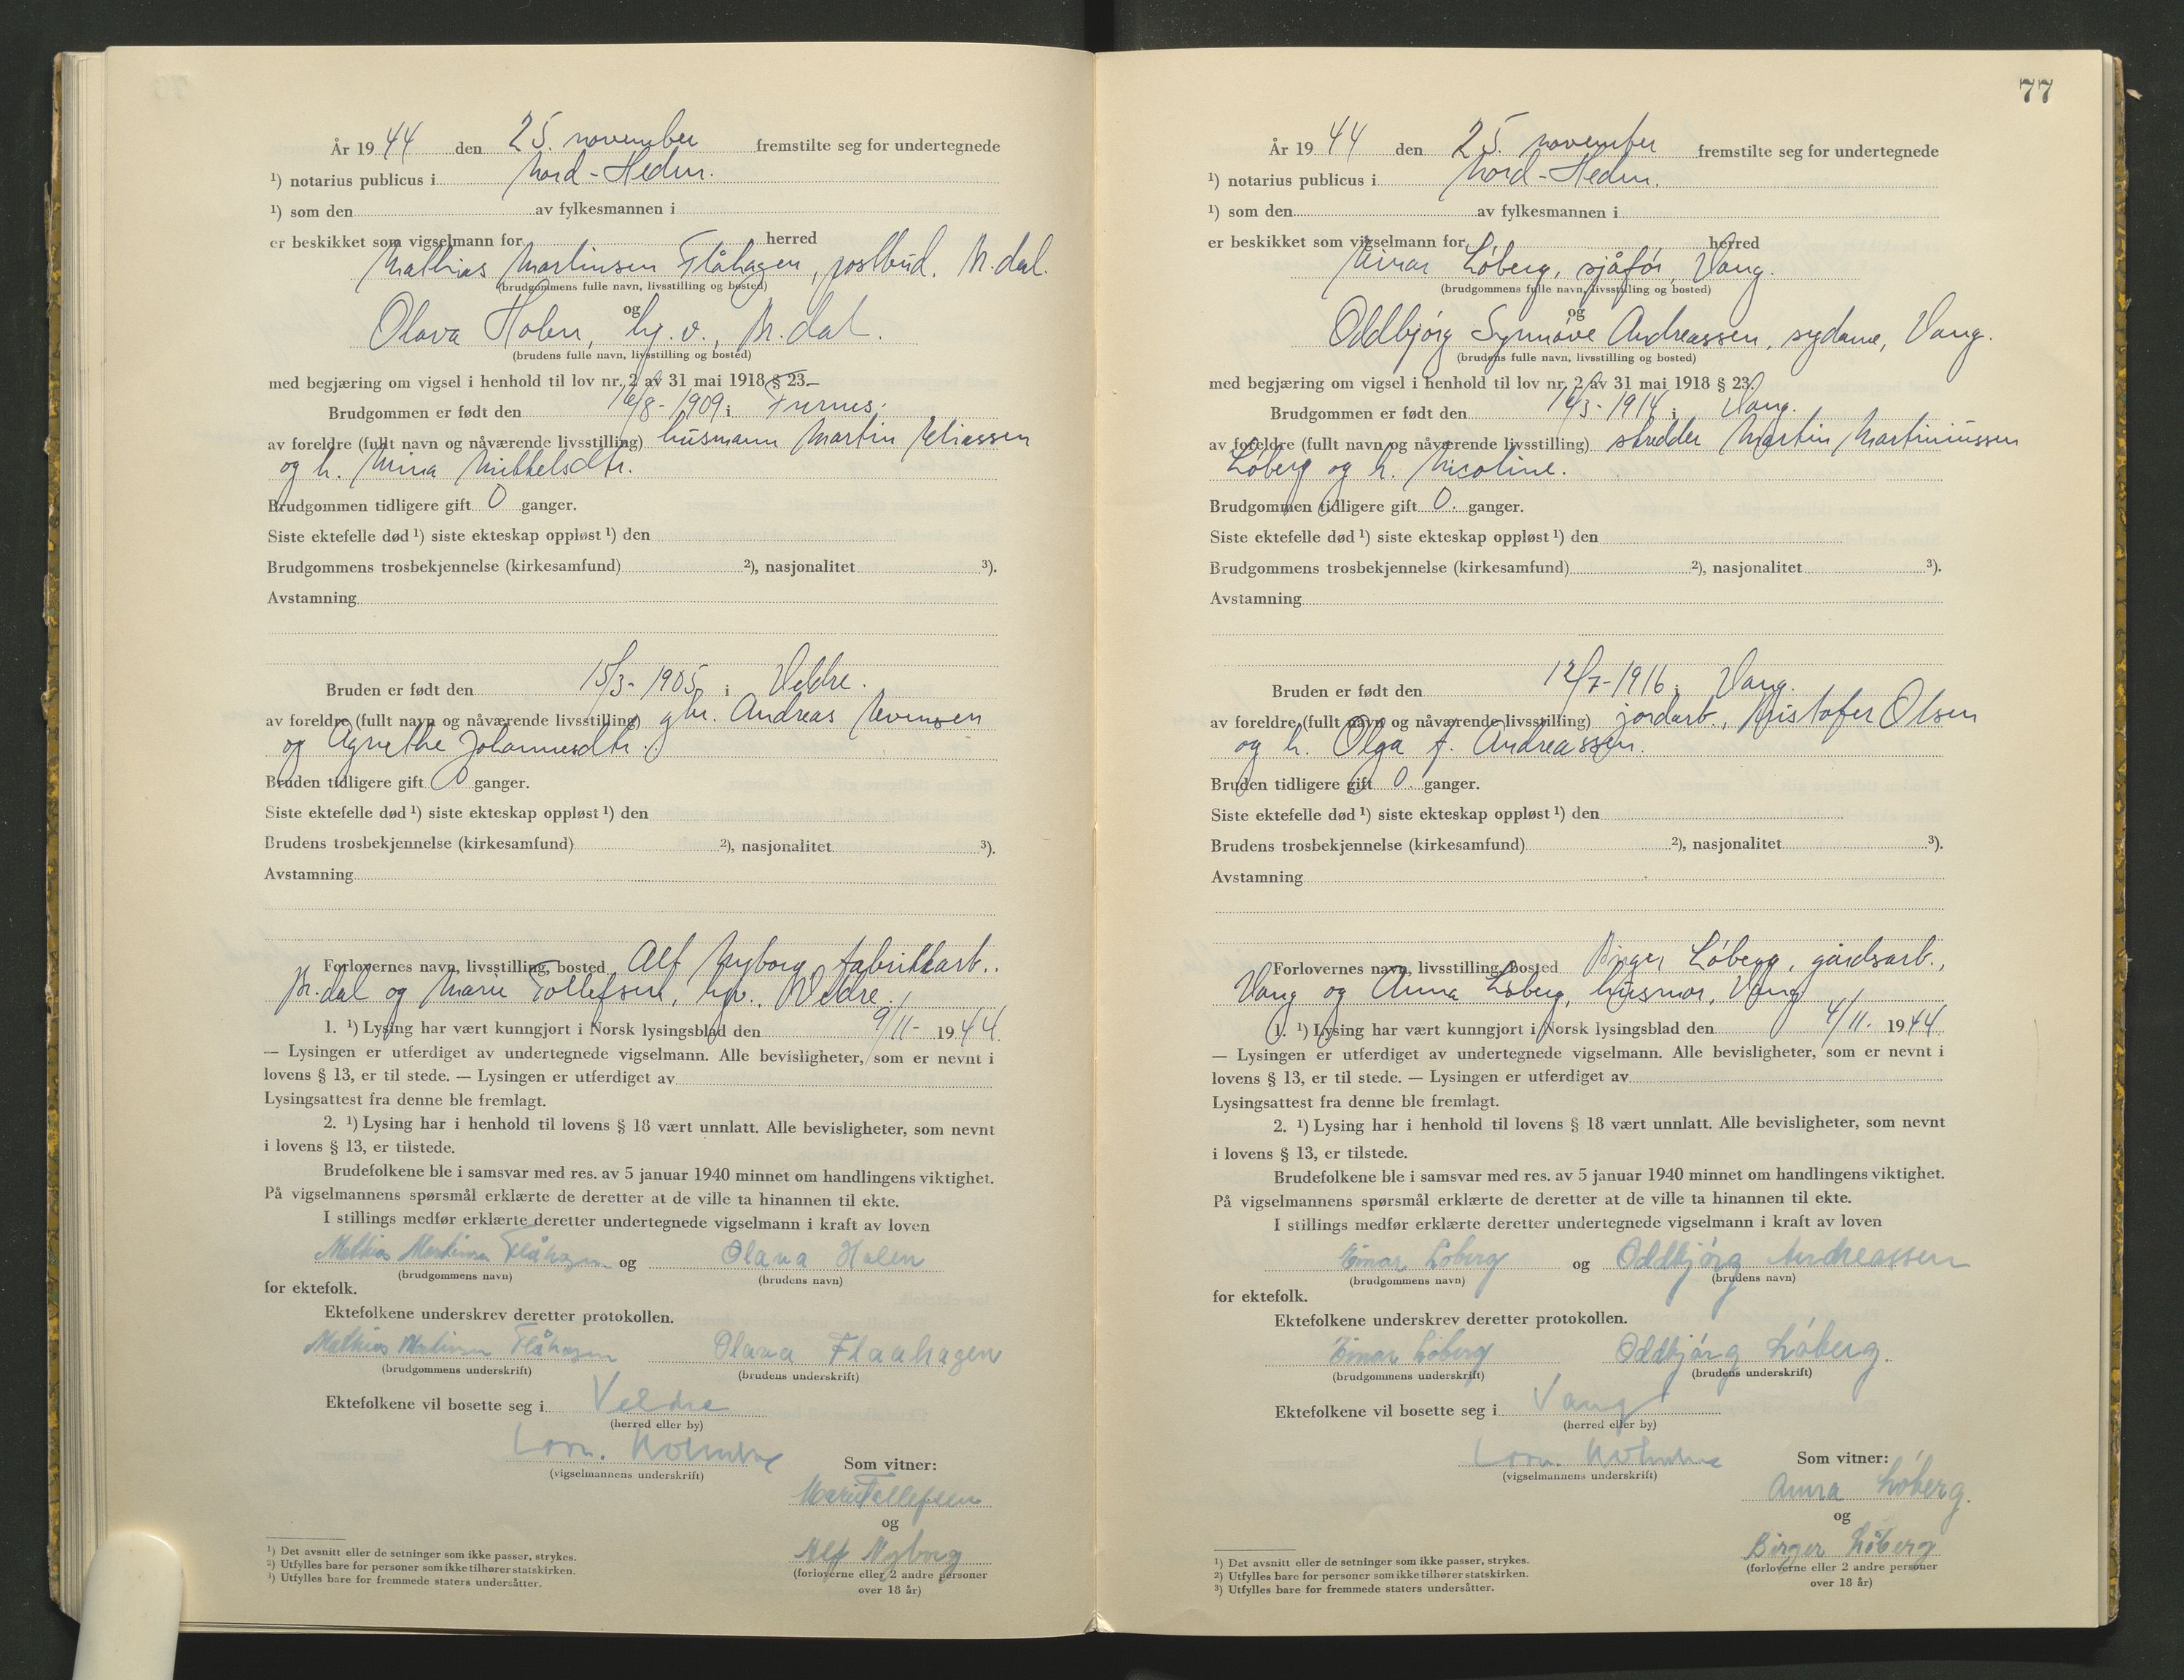 År 1944 den 25. november fremstilte seg for undertegnede
¹) notarius publicus i Nord-Hedm.
¹) som den av fylkesmannen i
er beskikket som vigselmann for herred
Mathias Martinsen Flåhagen, postbud, Br.dal.
(brudgommens fulle navn, livsstilling og bosted)
og
Olava Holen, hg.v., Br.dal.
(brudens fulle navn, livsstilling og bosted)
med begjæring om vigsel i henhold til lov nr. 2 av 31 mai 1918 § 23.
Brudgommen er født den 16/8-1909 i Furnes.
av foreldre (fullt navn og nåværende livsstilling) husmann Martin Eliassen
og h. Mina Mikkelsdtr.
Brudgommen tidligere gift 0 ganger.
Siste ektefelle død ¹) siste ekteskap oppløst ¹) den
Brudgommens trosbekjennelse (kirkesamfund) ²), nasjonalitet ³).
Avstamning
Bruden er født den 15/3-1905 i Veldre.
av foreldre (fullt navn og nåværende livsstilling) gbr. Andreas Evensen
og Agnethe Johannesdtr.
Bruden tidligere gift 0 ganger.
Siste ektefelle død ¹) siste ekteskap oppløst ¹) den
Brudens trosbekjennelse (kirkesamfund) ²), nasjonalitet ³).
Avstamning
Forlovernes navn, livsstilling, bosted Alf Nyborg, fabrikkarb.,
Br.dal og Marie Tollefsen, hgv., Veldre.
1. ¹) Lysing har vært kunngjort i Norsk lysingsblad den 9/11- 1944.
— Lysingen er utferdiget av undertegnede vigselmann. Alle bevisligheter, som er nevnt i
lovens § 13, er til stede. — Lysingen er utferdiget av
Lysingsattest fra denne ble fremlagt.
2. ¹) Lysing har i henhold til lovens § 18 vært unnlatt. Alle bevisligheter, som nevnt
i lovens § 13, er tilstede.
Brudefolkene ble i samsvar med res. av 5 januar 1940 minnet om handlingens viktighet.
På vigselmannens spørsmål erklærte de deretter at de ville ta hinannen til ekte.
I stillings medfør erklærte deretter undertegnede vigselmann i kraft av loven
Mathias Martinsen Flåhagen og Olava Holen
(brudgommens navn) (brudens navn)
for ektefolk.
Ektefolkene underskrev deretter protokollen.
Mathias Martinsen Flåhagen Olava Flaahagen
(brudgommens underskrift) (brudens underskrift)
Ektefolkene vil bosette seg i Veldre
(herred eller by)
(vigselmannens underskrift)
Som vitner:
Marie Tollefsen
og
Alf Nyborg
(forloverne eller 2 andre personer
over 18 år)
¹) Det avsnitt eller de setninger som ikke passer, strykes.
²) Utfylles bare for personer som ikke tilhører statskirken.
³) Utfylles bare for fremmede staters undersåtter.
77
År 1944 den 25. november fremstilte seg for undertegnede
¹) notarius publicus i Nord-Hedm.
¹) som den av fylkesmannen i
er beskikket som vigselmann for herred
Einar Løberg, sjåfør, Vang.
(brudgommens fulle navn, livsstilling og bosted)
og
Oddbjørg Synnøve Andreassen, sydame, Vang.
(brudens fulle navn, livsstilling og bosted)
med begjæring om vigsel i henhold til lov nr. 2 av 31 mai 1918 § 23.
Brudgommen er født den 16/3-1914 i Vang.
av foreldre (fullt navn og nåværende livsstilling) skredder Martin Martiniussen
Løberg og h. Nicoline.
Brudgommen tidligere gift 0. ganger.
Siste ektefelle død ¹) siste ekteskap oppløst ¹) den
Brudgommens trosbekjennelse (kirkesamfund) ²), nasjonalitet ³).
Avstamning
Bruden er født den 12/7-1916 i Vang.
av foreldre (fullt navn og nåværende livsstilling) jordarb., Kristofer Olsen
og h. Olga f. Andreassen.
Bruden tidligere gift 0. ganger.
Siste ektefelle død ¹) siste ekteskap oppløst ¹) den
Brudens trosbekjennelse (kirkesamfund) ²), nasjonalitet ³).
Avstamning
Forlovernes navn, livsstilling, bosted Birger Løberg, gårdsarb.,
Vang og Anna Løberg, husmor, Vang
1. ¹) Lysing har vært kunngjort i Norsk lysingsblad den 4/11. 1944
— Lysingen er utferdiget av undertegnede vigselmann. Alle bevisligheter, som er nevnt i
lovens § 13, er til stede. — Lysingen er utferdiget av
Lysingsattest fra denne ble fremlagt.
2. ¹) Lysing har i henhold til lovens § 18 vært unnlatt. Alle bevisligheter, som nevnt
i lovens § 13, er tilstede.
Brudefolkene ble i samsvar med res. av 5 januar 1940 minnet om handlingens viktighet.
På vigselmannens spørsmål erklærte de deretter at de ville ta hinannen til ekte.
I stillings medfør erklærte deretter undertegnede vigselmann i kraft av loven
Einar Løberg og Oddbjørg Andreassen
(brudgommens navn) (brudens navn)
for ektefolk.
Ektefolkene underskrev deretter protokollen.
Einar Løberg Oddbjørg Løberg.
(brudgommens underskrift) (brudens underskrift)
Ektefolkene vil bosette seg i Vang
(herred eller by)
(vigselmannens underskrift)
Som vitner:
Anna Løberg.
og
Birger Løberg
(forloverne eller 2 andre personer
over 18 år)
¹) Det avsnitt eller de setninger som ikke passer, strykes.
²) Utfylles bare for personer som ikke tilhører statskirken.
³) Utfylles bare for fremmede staters undersåtter.